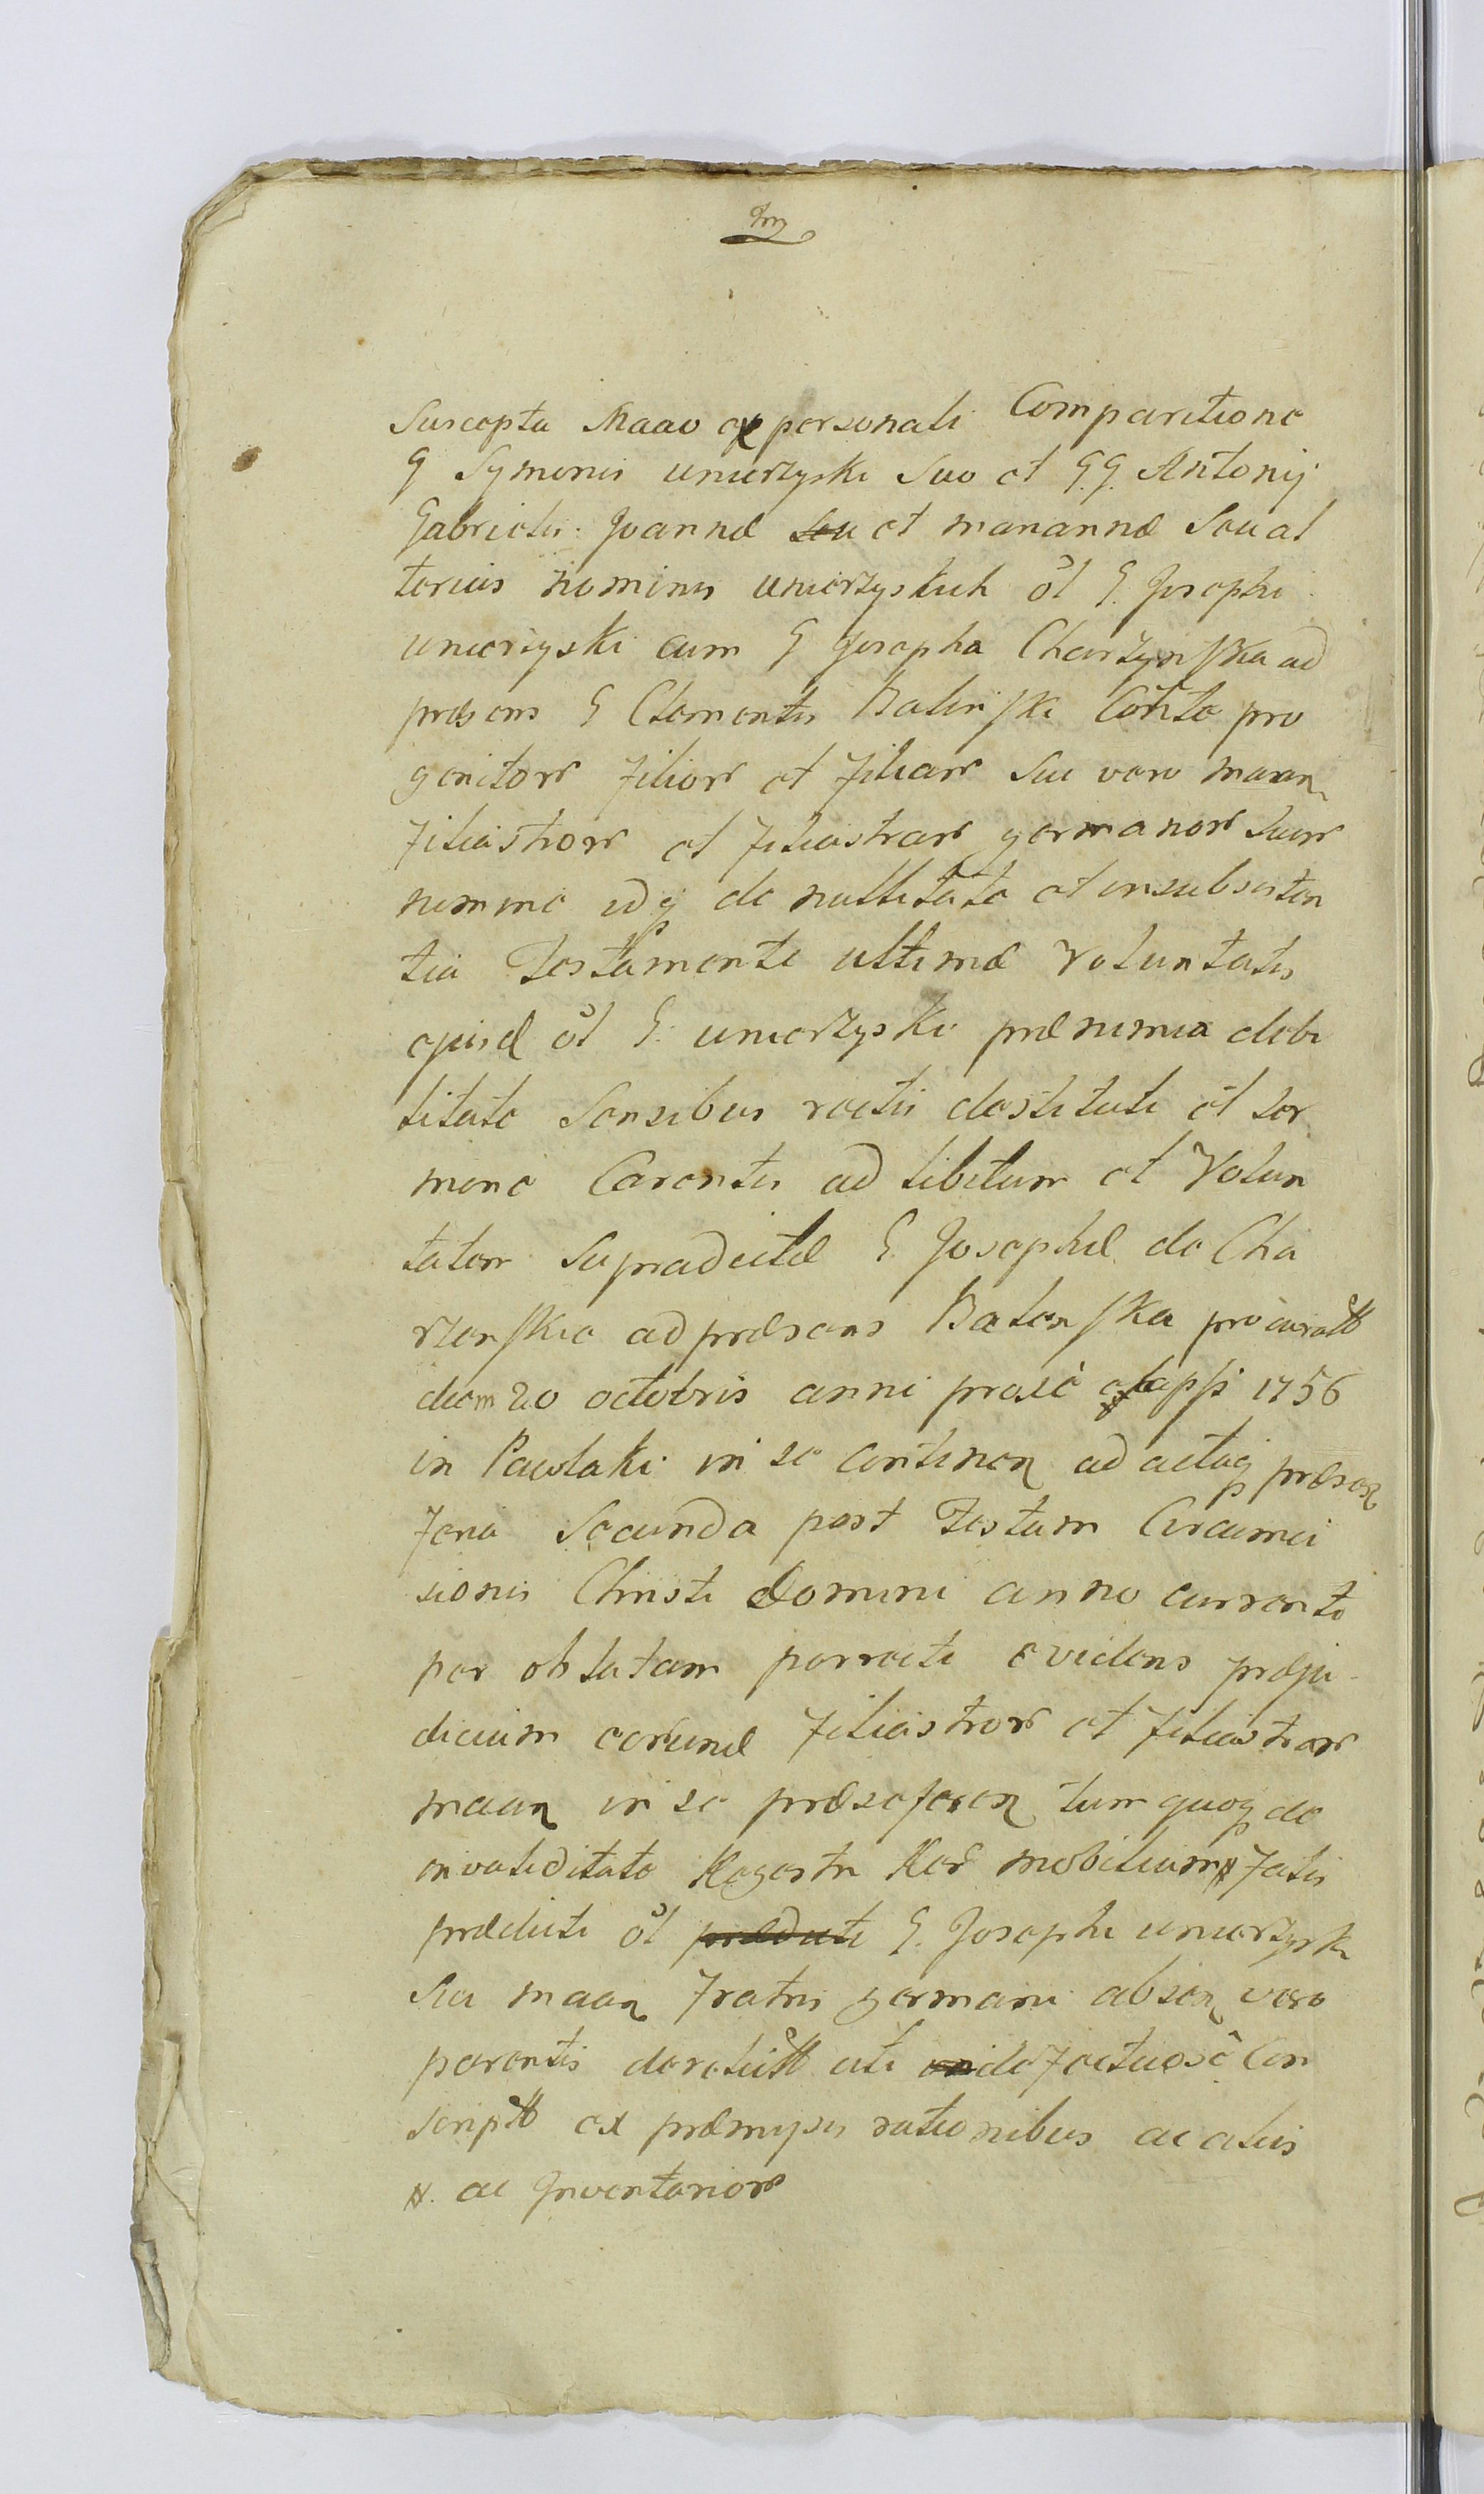 Suscepta Maao ex personali Comparitione
G Symonis unierzyski Suo et G.G. Antonij
Gabrielis Joannæ seu et mariannæ Seu al
terius nominis unierzyskich ol G. Josephi
unierzyski cum G Josepha Charzynska ad
præsens G Clementis Balinski Conte pro
genitorr filiorr et filiarr Sui vero maan
filiastrorr et filiastrarr germanorr Suorr
nomine idq de nullitate et insubsisten
tia Testamenti ultimæ Voluntatis
ejusd ol G. unierzyski præ nimia debi
litate Sensibus rectis destituti et ser
mone Carentis ad libitum et Volun
tatem Supradictæ G Josephæ de Cha
rzenskie ad præsens Balenska procuratt
diem 20 octobris anni proxe elapsi 1756
in Pawlaki in se continen ad actaq præsen
feria Secunda post Festum Circumci
sionis Christi Domini anno currente
per oblatam porrecti evidens præju
dicium eorund filiastrorr et filiastrarr
maan in se præseferen tum quoq de
invaliditate Regestri Rer mobilium # fatis
prædicti ol prædicti G. Josephi unierzysk
Sui maan fratris germani absen vero
parentis derelictt uti defectuose Con
scriptt ex præmissis rationibus ac aliis
#. ac Inventariorr